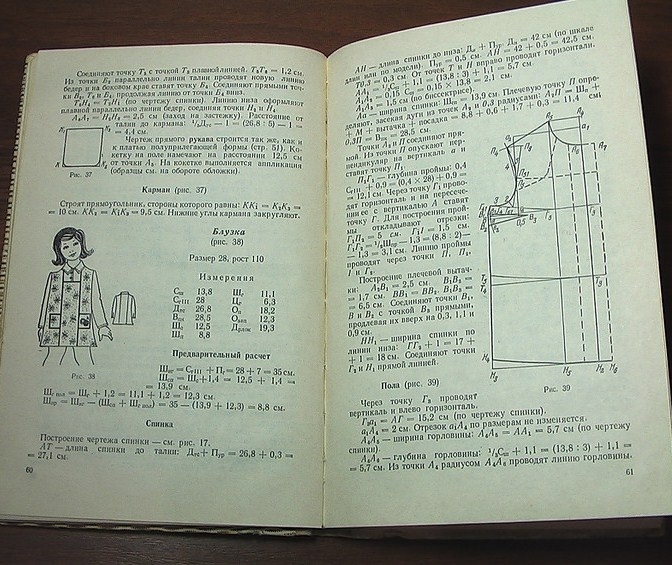 Соединяют точку Т₅ с точкой Т₆ плавной линией. Т₅Т₆ = 1,2 см.
Из точки Б₂ параллельно линии талии проводят новую линию
бедер и на боковом крае ставят точку Б₄. Соединяют прямыми точ-
ки продолжая линию от точки Б₄ вниз.
(по чертежу спинки). Линию низа оформляют
плавной параллельно линии бедер, соединяя точки Н₃ и Н₄.
= 2,5 см (заход на застежку). Расстояние от
талии до кармана: — 1 = (26,8 : 5) — 1 =
= 4,4 см.
Чертеж прямого рукава строится так же, как и
к платью полуприлегающей формы (стр. 51). Ко-
кетку на полочке намечают на расстоянии 12,5 см
от точки А₈. На кокетке выполняется аппликация
(образцы см. на обороте обложки).
Рис. 37
Карман (рис. 37)
Строят прямоугольник, стороны которого равны: КК₁ = К₂К₃ =
= 10 см. КК₂ = К₁К₃ = 9,5 см. Нижние углы кармана закругляют.
Блузка
(рис. 38)
Размер 28, рост 110
Измерения
Сш 13,8 Шг 11,1
СгIII 28 Цг 6,3
Дтс 26,8 Оп 18,2
Впк 28,5 Озап 12,3
Шс 12,5 Друк 19,3
Шп 8,8
Предварительный расчет
Шиг = СгIII + Пг = 28 + 7 = 35 см.
Шсп = Шс + 1,4 = 12,5 + 1,4 =
= 13,9 см.
Рис. 38
Шг пол = Шг + 1,2 = 11,1 + 1,2 = 12,3 см.
Шпр = Шиг — (Шсп + Шг пол) = 35 — (13,9 + 12,3) = 8,8 см.
Спинка
Построение чертежа спинки — см. рис. 17.
АТ — длина спинки до талии: Дтс + Пур = 26,8 + 0,3 =
= 27,1 см.
60
АН — длина спинки до низа: Ди + Пур. Ди = 42 см (по шкале
длин или по модели). Пур = 0,5 см. АН = 42 + 0,5 = 42,5 см.
= 0,3 см. От точек Т и Н вправо проводят горизонтали.
АА₁ = ¹/₃Сш + 1,1 = (13,8 : 3) + 1,1 = 5,7 см.
= 0,15 × 13,8 = 2,1 см.
= 1,5 см (по биссектрисе).
Аа — ширина спинки: Шсп = 13,9 см. Плечевую точку П опре-
деляют, засекая дуги из точек А₂ и 0,3 радиусами: А₂П = Шп +
+ М + вытачка + посадка = 8,8 + 0,6 + 1,7 + 0,3 = 11,4 см;
0,3П = Впк = 28,5 см.
Точки А₂ и П соединяют пря-
мой. Из точки П опускают пер-
пендикуляр на вертикаль а и
ставят точку П₁.
П₁Г₁ — глубина проймы: 0,4
СгIII + 0,9 = (0,4 × 28) + 0,9 =
= 12,1 см. Через точку Г₁ прово-
дят горизонталь и на пересече-
нии ее с вертикалью А ставят
точку Г. Для построения прой-
мы откладывают отрезки:
= 5 см. = 1,5 см.
— 1,3 = (8,8 : 2) —
— 1,3 = 3,1 см. Линию проймы
проводят через точки П, П₂,
1 и Г₂.
Построение плечевой вытач-
ки: А₂В₁ = 2,5 см. В₁В₂ =
= 1,7 см. ВВ₁ = ВВ₂. В₁В₃ =
= 6,5 см. Соединяют точки В₁,
В и В₂ с точкой В₃ прямыми,
продлевая их вверх на 0,3, 1,1 и
0,9 см.
НН₁ — ширина спинки по
линии низа: ГГ₂ + 1 = 17 +
+ 1 = 18 см. Соединяют точки
Г₂ и Н₁ прямой линией.
Рис. 39
Пола (рис. 39)
Через точку Г₃ проводят
вертикаль и влево горизонталь.
Г₃а₁ = АГ = 15,2 см (по чертежу спинки).
= 2 см. Отрезок по размерам не изменяется.
— ширина горловины: = АА₁ = 5,7 см (по чертежу
спинки).
— глубина горловины: ¹/₃Сш + 1,1 = (13,8 : 3) + 1,1 =
= 5,7 см. Из точки А₄ радиусом проводят линию горловины.
61